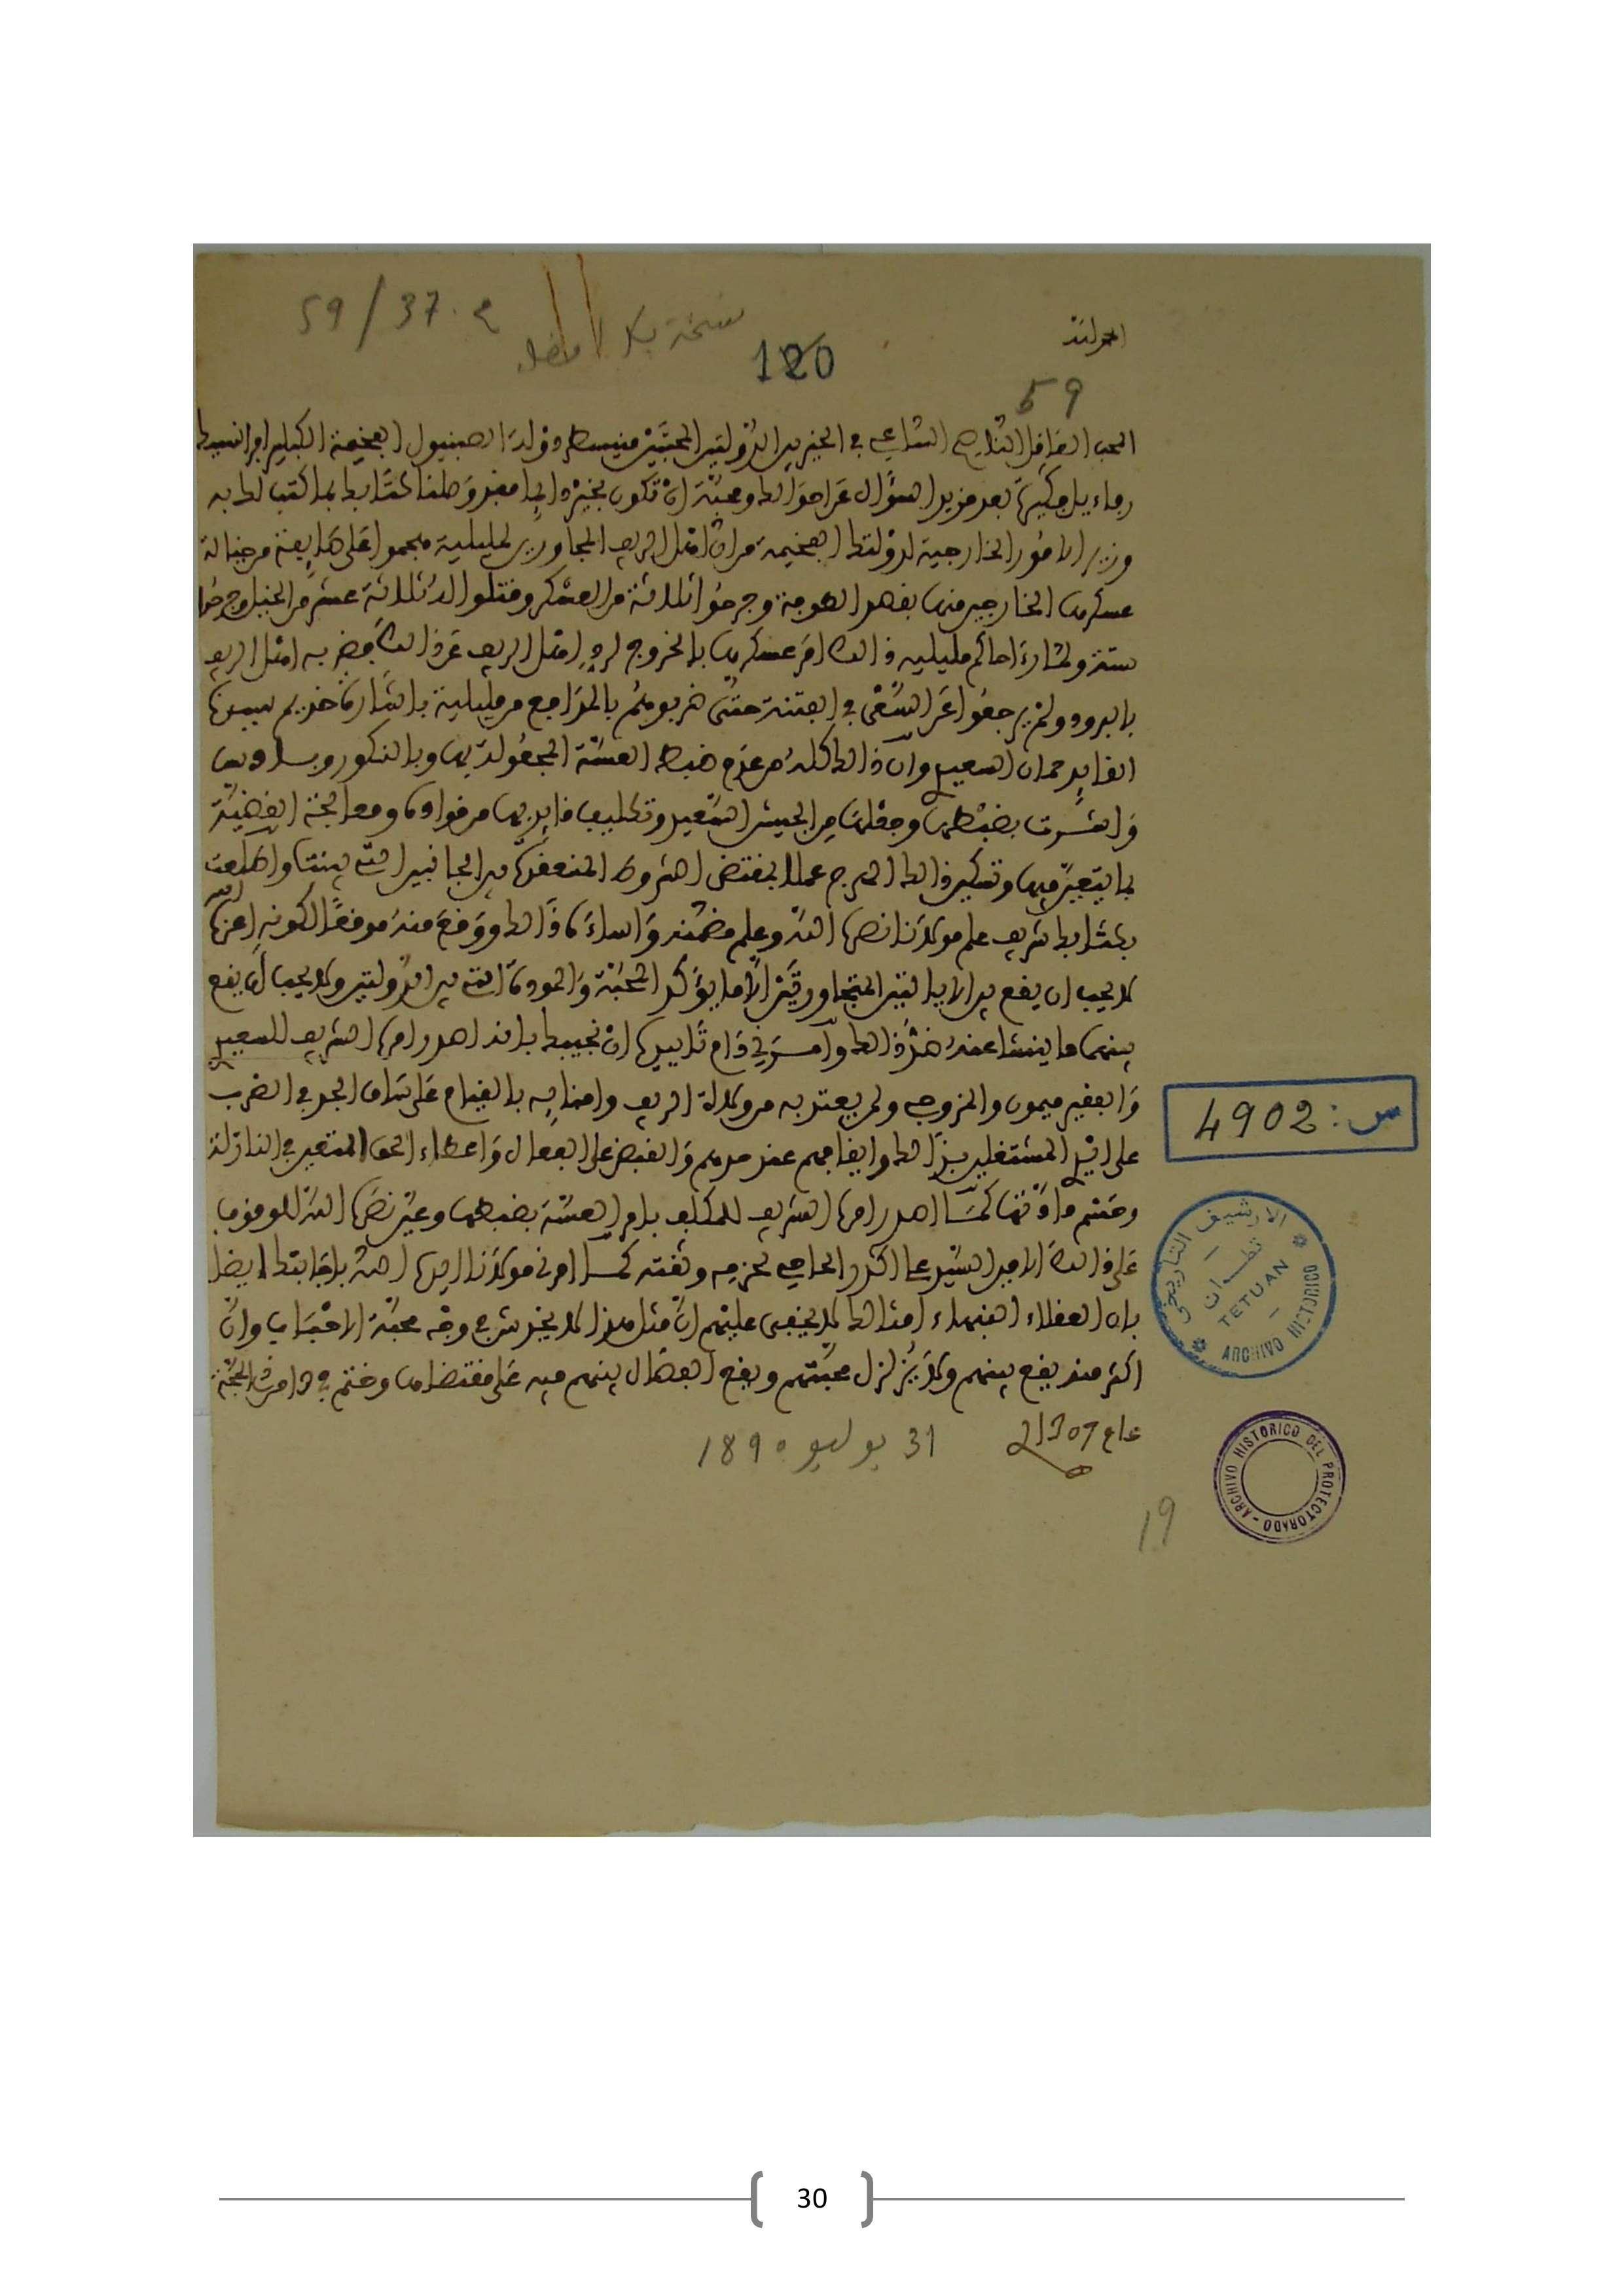 59 / 37 . ج
نسخة بلا امضاء
الحمد لله
120
59
المحب العاقل الناصح الساعي في الخير بين الدولتين المحبتين منيسطر دولة الصبنيول الفخيمة الكبلير
بعد مزيد السؤال عن احوالك ومحبة ان تكون بخير دايما فقد وصلنا كتابك بما كتب لك به
وزير الامور الخارجية لدولتك الفخيمة من ان اهل الريف المجاورين لمليلية هجموا على طايفة من خيالة
عسكرها الخارجين منها بقصد الطوفة وجرحوا ثلاثة من العسكر وقتلوا ثلاثة عشر من الخيل وجرحوا
ستة ولما رءا حاكم مليلية ذالك امر عسكرها بالخروج لرد اهل الريف عن ذالك فضربه اهل الريف
بالبرود ولم يرجعوا عن السعي في الفتنة حتى ضربوهم بالمدافع من مليلية باشارة خديم سيدنا
القايد حمان السعيدي وان ذالك كله من عدم ضبط العسة المجعولة بها وبالنكور وبادس
واشرت بضبطها وجعلها من الجيش السعيد وتكليف قايد بها من قوادها ومع المحبة
بما يتعين فيها وتسكين ذالك الهرج عملا بمقتضى الشروط المنعقدة بين الجانبين التي بيننا واطلعت
بكتابك شريف علم مولانا نصره الله وعلم مضمنه واساءه ذالك ووقع منه موقعا لكونه اعزه الله
لا يحب ان يقع بين الايالتين المتجاورتين الا ما يؤكد المحبة والمودة التي بين الدولتين ولا يحب ان يقع
بينهما ما ينشا عنه ضد ذالك وامرني دام تاييده ان نجيبك بانه اصدر امره الشريف للسعيدي
والفقير ميمون والمزوجي ولمن يعتد به من ولاة الريف وامنايه بالقيام على ساق الجد في الضرب
على ايدي المشتغلين بذالك وايقافهم عند حدهم والقبض على الفعال واعطاء الحق المتعين في النازلة
وحسم مادتها كما اصدر امره الشريف للمكلف بامر العسة بضبطها وعين نصره الله للوقوف
على ذالك الامين السيد محمد الحاجي لحزمه وثقته كما امرني مولانا ايده الله باجابتك ايضا
بان العقلاء الفهماء امثالك لا يخفى عليهم ان مثل هذا لا يخدش في وجه محبة الاحباب وان
اكثر منه يقع بينهم ولا يزلزل محبتهم ويقع الفصال بينهم فيه على مقتضاها وختم في
عام 1307
31 يوليو 1890
19
س : 4902
الارشيف التاريخي
تطوان
TETUAN
ARCHIVO HISTORICO
ARCHIVO HISTORICO DEL PROTECTORADO
30